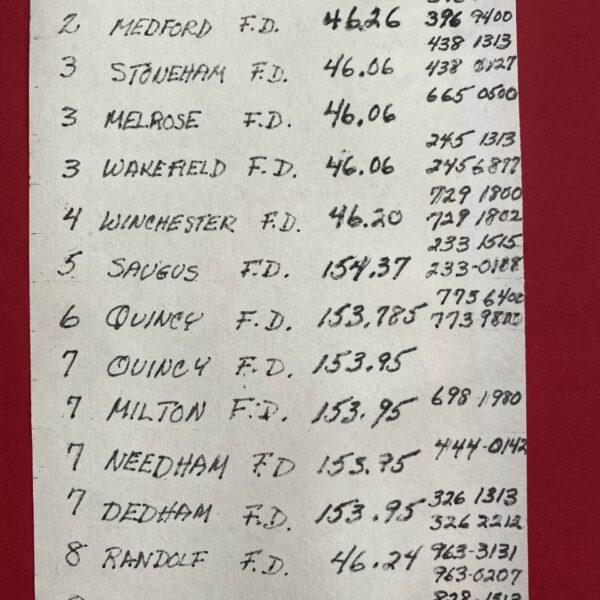 2 MEDFORD F.D. 46.26 396 9400
438 1313
3 STONEHAM F.D. 46.06 438 0127
665 0500
3 MELROSE F.D. 46.06
245 1313
3 WAKEFIELD F.D. 46.06 245 6877
729 1800
4 WINCHESTER F.D. 46.20 729 1802
233 1515
5 SAUGUS F.D. 154.37 233-0188
773 6400
6 QUINCY F.D. 153.785 773 9800
7 QUINCY F.D. 153.95
7 MILTON F.D. 153.95 698 1980
444-0142
7 NEEDHAM F.D 153.95
7 DEDHAM F.D. 153.95 326 1313
326 2212
8 RANDOLF F.D. 46.24 963-3131
963-0207
828 1313